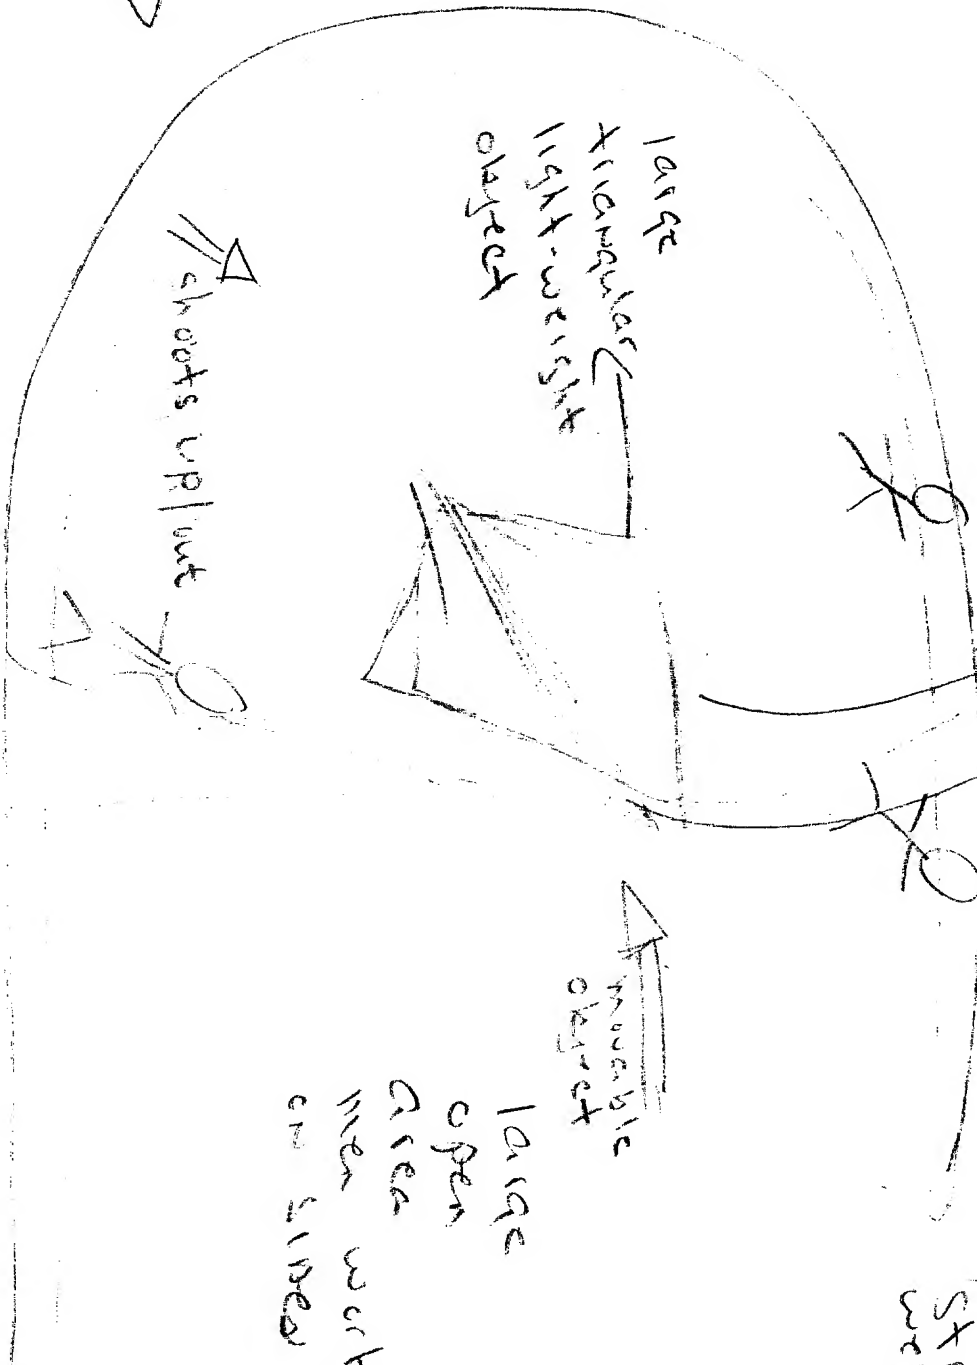 large
triangular
light-weight
object
shoots up/out
movable
object
large
open
area
men work
on sides
we